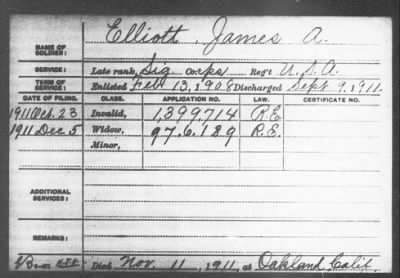 NAME OF SOLDIER: Elliott, James A.
SERVICE: Late rank, Sig. Corps Reg't U. S. A.
TERM OF SERVICE: Enlisted Feb 13, 1908 Discharged Sept 9, 1911.
DATE OF FILING. CLASS. APPLICATION NO. LAW. CERTIFICATE NO.
1911 Oct. 23 Invalid, 1,399,714 R.E.
1911 Dec 5 Widow, 976,189 R.E.
Minor,
ADDITIONAL SERVICES:
REMARKS:
Died Nov 11, 1911, at Oakland Calif.